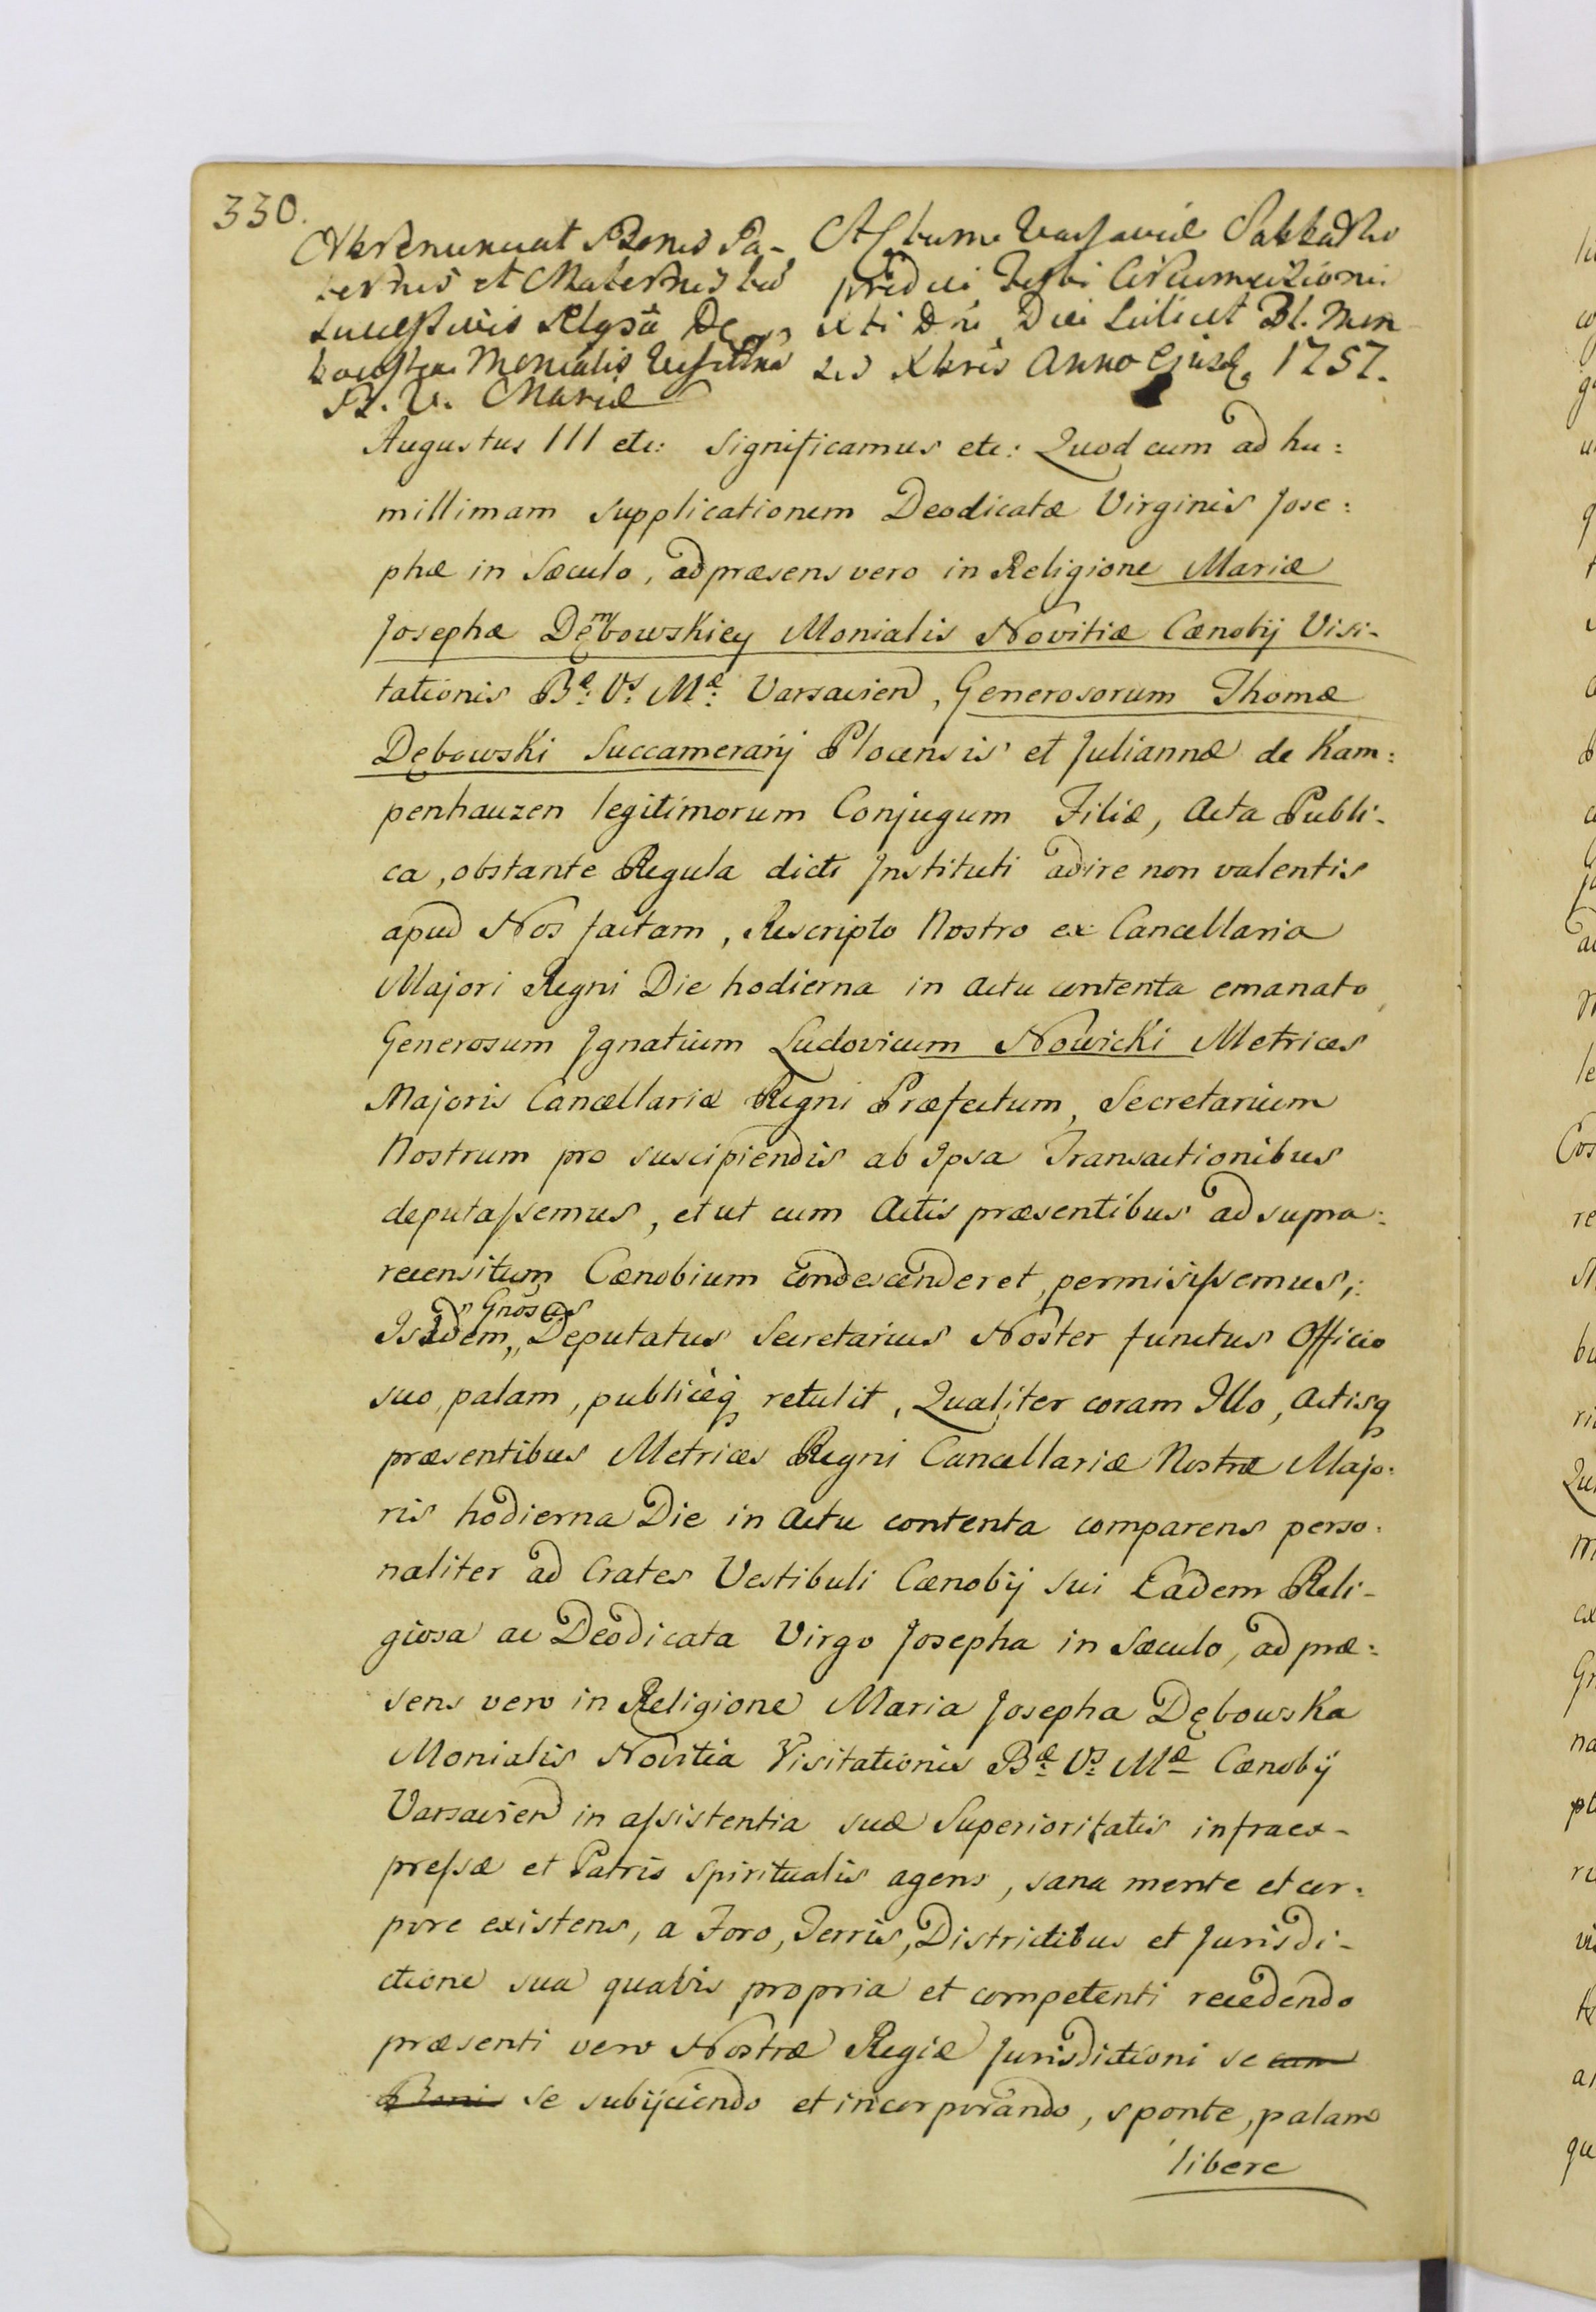 330.
Abrenunciat Bonis Pa-
ternis et Maternis
successivis
Monialis
B. V. Mariæ
Actum Varsaviæ Sabbatho
pridie Festi Circumcisionis
Dni Die scilicet 31. Men
sis Xbris Anno Ejusd. 1757.
Augustus III etc: Significamus etc: Quod cum ad hu:
millimam supplicationem Deodicatæ Virginis Jose:
phæ in Sæculo, ad præsens vero in Religione Mariæ
Josephæ Dęmbowskiey Monialis Novitiæ Cænobij Visi-
tationis Bæ: Vs: Mæ: Varsavien, Generosorum Thomæ
Dębowski Succamerarij Plocensis et Juliannæ de Kam:
penhauzen legitimorum Conjugum Filiæ, Acta Publi-
ca, obstante Regula dicti Instituti adire non valentis
apud Nos factam, Rescripto Nostro ex Cancellaria
Majori Regni Die hodierna in Actu contenta emanato
Generosum Ignatium Ludovicum Nowicki Metrices
Majoris Cancellariæ Regni Præfectum, Secretarium
Nostrum pro suscipiendis ab Ipsa Transactionibus
deputassemus, et ut cum Actis præsentibus ad supra:
recensitum Cænobium condescenderet, permisissemus,:
Gnosus
Isdem,, Deputatus Secretarius Noster functus Officio
suo, palam, publiceq retulit, Qualiter coram Illo, Actisq
præsentibus Metrices Regni Cancellariæ Nostræ Majo:
ris hodierna Die in Actu contenta comparens perso:
naliter ad Crates Vestibuli Cænobij sui Eadem Reli-
giosa ac Deodicata Virgo Josepha in Sæculo, ad præ:
sens vero in Religione Maria Josepha Dębowska
Monialis Novitia Visitationis Bæ: Vs: Mæ Cænobij
Varsavien in assistentia suæ Superioritatis infraex-
pressæ et Patris Spiritualis agens, sana mente et cor:
pore existens, a Foro, Terris, Districtibus et Jurisdi-
ctione sua quavis propria et competenti recedendo
præsenti vero Nostræ Regiæ Jurisdictioni se cum
Bonis se subijciendo et incorporando, sponte, palam
libere